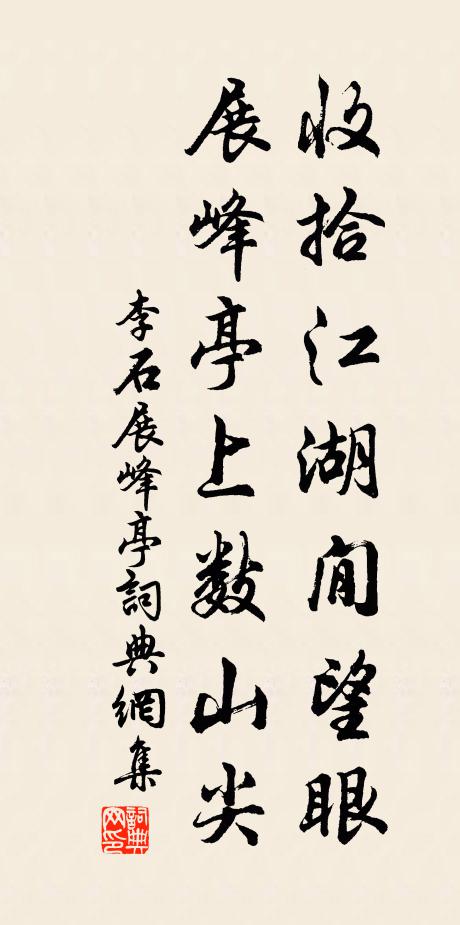 收拾江湖閒望眼
展峰亭上數山尖
李石展峰亭詞典網集
詞典网印